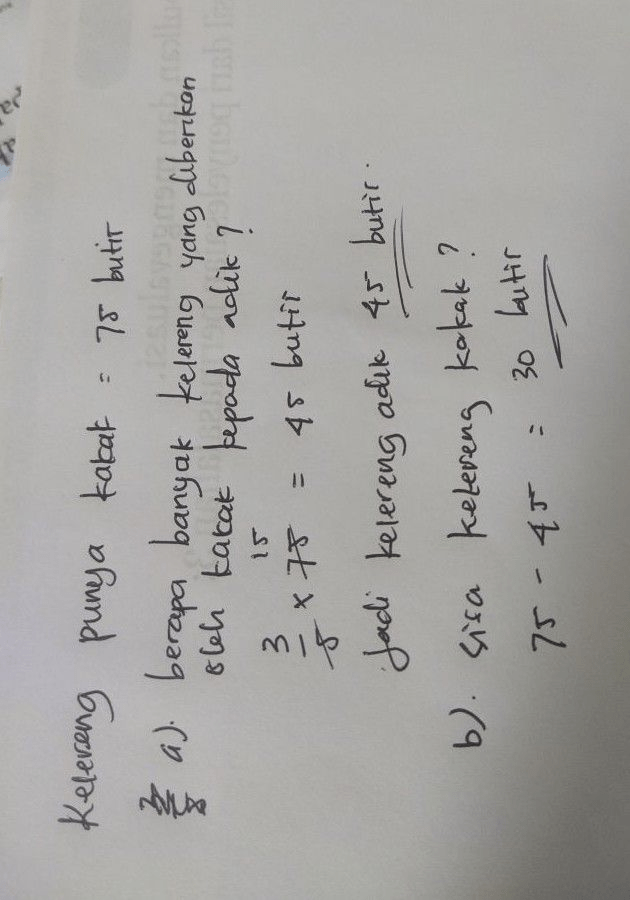 Kelereng punya kakak = 75 butir
a). berapa banyak kelereng yang diberikan
oleh kakak kepada adik?
15
3/5 x 75 = 45 butir
Jadi kelereng adik 45 butir.
b). Sisa kelereng kakak?
75 - 45 = 30 butir